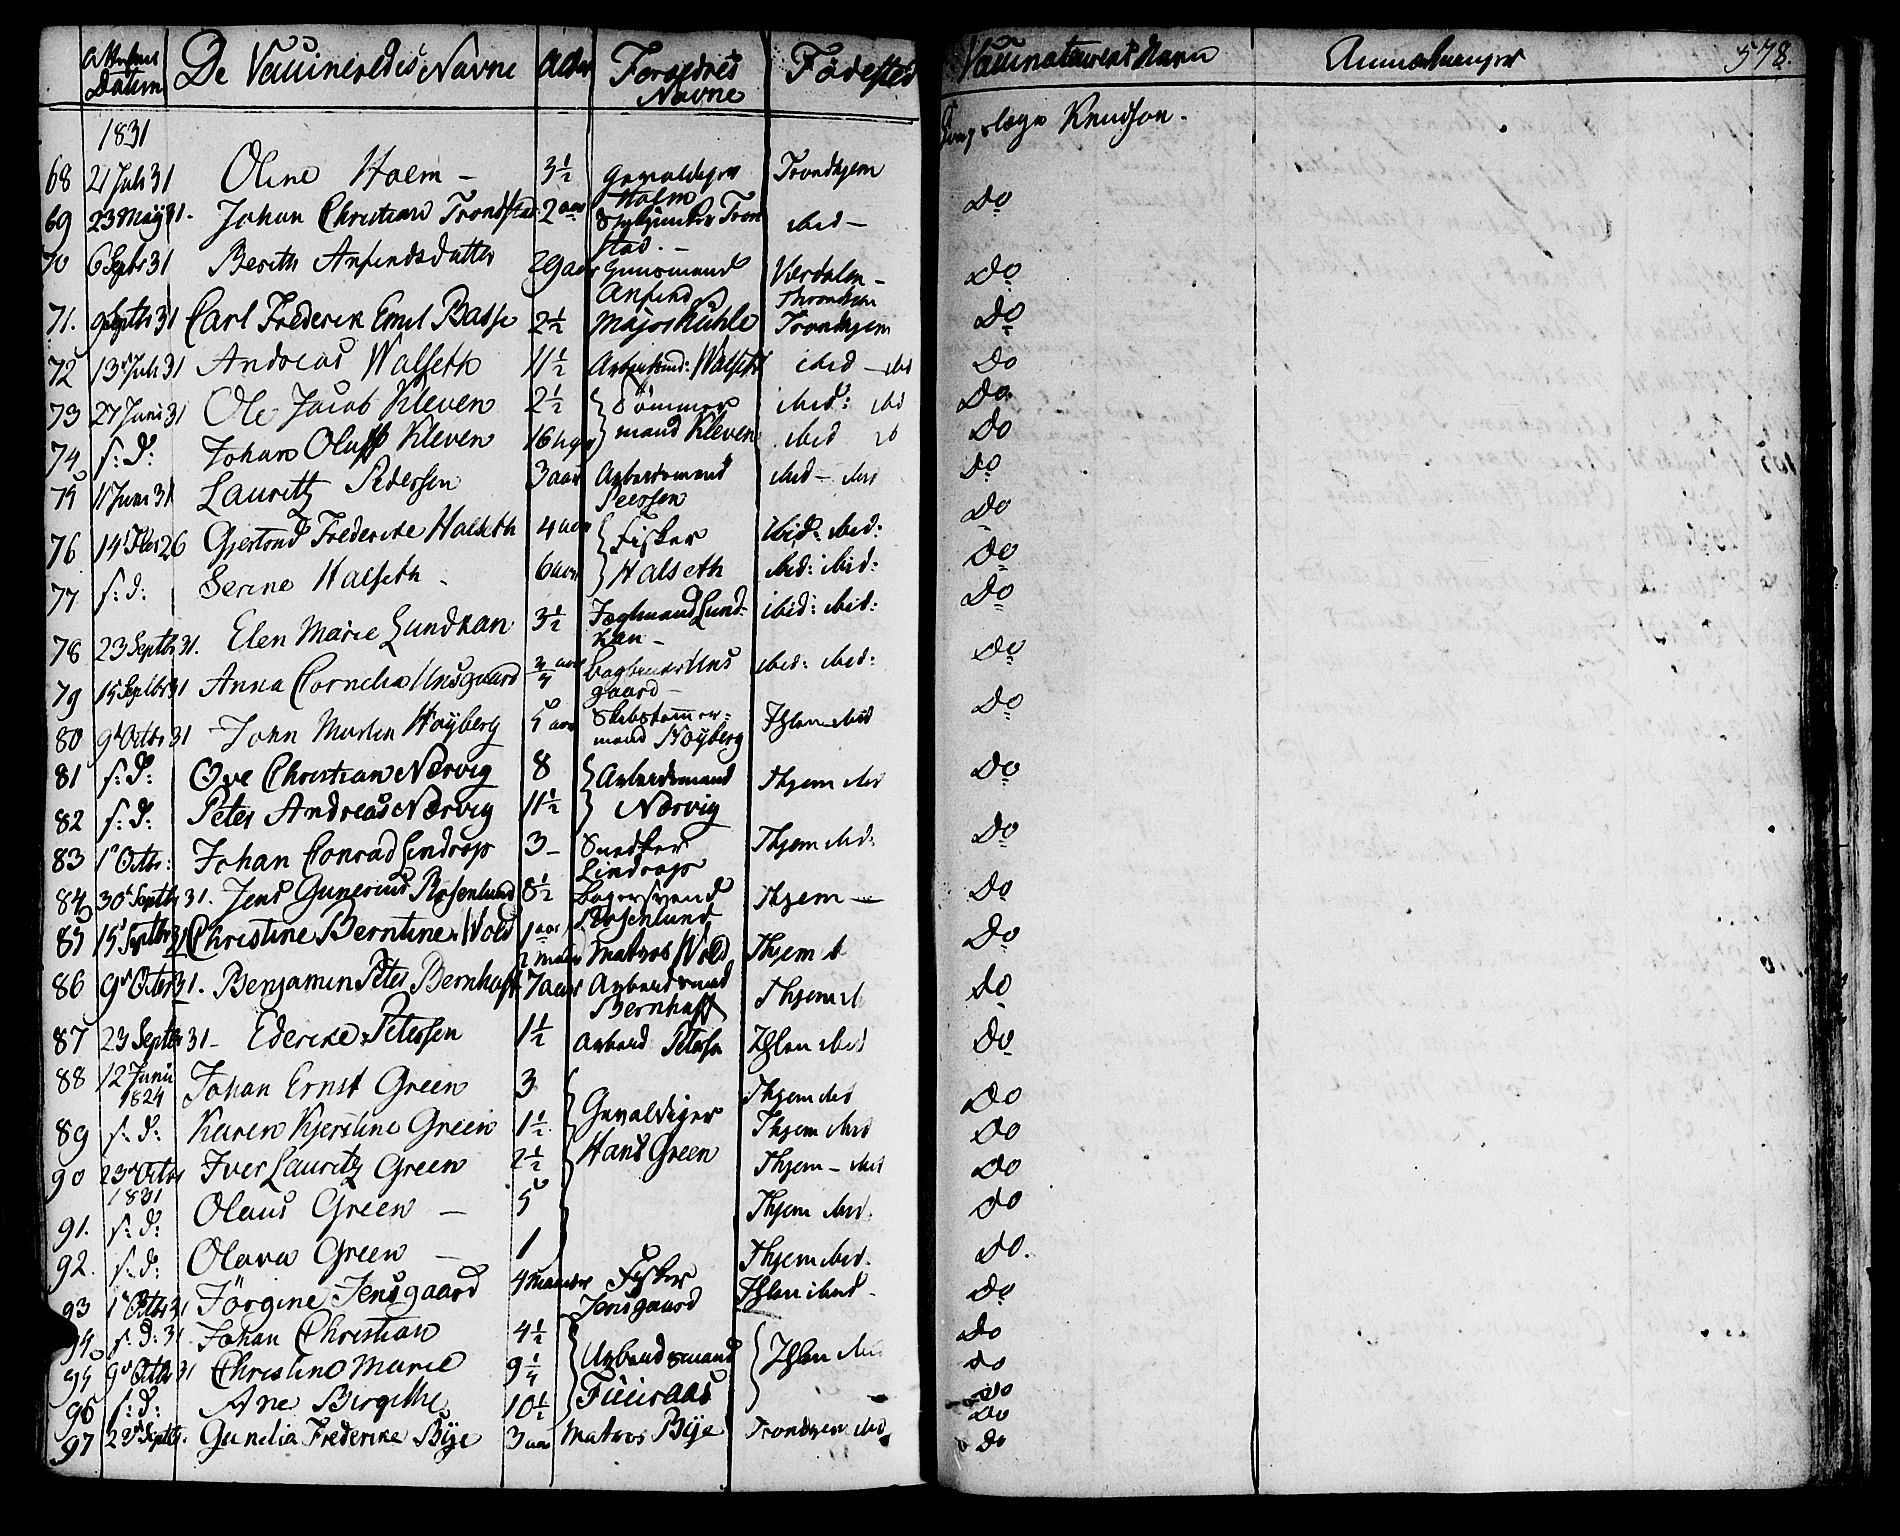 Attestens Datum De Vaccineredes Navne Alder Forældres Navne Fødested Vaccinateurens Navn Anmærkninger 578.
1831 Knudson.
68 21 Juli 31 Oline Holm - 3½ Gevaldiger Holm Trondhjem Do
69 23 May 31. Johan Christian Trondstad 2 aar Tronstad. - ibid - Do
70 6 Septbr 31 Berith Anfindsdatter 29 aar Anfind Værdalen - Do
71. 9 Septbr 31 Carl Frederik Emil Basse 2½ Major Kühle Trondhjem Do
72 13 Juli 31 Andreas Walseth 11½ Arbeidsmd: Walseth ibid - ibid Do
73 27 Juni 31 Ole Jacob Kleven 2½ Tömmermand Kleven ibid: ibid Do
74 s: d: Johan Oluff Kleven 16 uger ibid Do
75 11 Juni 31 Lauritz Pedersen 3 aar Arbeidsmand Peersen ibid - ibid Do
76 14 26 Gjertrud Frederike Halseth 4 aar Fisker Halseth ibid: ibid: Do
77 s: d: Serine Halseth - 6 aar ibid: ibid: Do
78 23 Septbr 31. Elen Marie Lundkan 3½ Lundkan - ibid: ibid: Do
79 15 Septbr 31 Anna Cornelia Unsgaard ¾ aar Unsgaard - ibid: ibid: Do
80 9 Octbr 31 John Martin Høyberg 5 aar Høyberg Ihlen ibid Do
81 s: d: Ove Christian Nærvig 8 Arbeidsmand Nærvig Thjem ibid Do
82 s: d: Peter Andreas Nærvig 11½
83 1 Octbr: Johan Conrad Lindrop 3 - Snedker Lindrop Thjem ibid: Do
84 30 Septbr 31. Jens Gunerius Rosenlund 8½ Bagersvend Rosenlund Thjem - Do
85 15 Septbr 31 Christine Berntine Wold 1 aar 2 maan Matros Wold Thjem Do
86 9 Octbr 31. Benjamin Peter Bernhoff 7 aar Arbeidsmand Bernhoff Thjem Do
87 23 Septbr 31 - Ederike Petersen 1½ Arbeid Petersen Ihlen ibid Do
88 12 Juni 1824 Johan Ernst Green 3 Gevaldiger Hans Green Thjem ibid Do
89 s: d: Karen Kjerstine Green 1½ Thjem ibid Do
90 23 Octbr 1831 Iver Lauritz Green 2½ Thjem - ibid Do
91. s: d: Olaus Green - 5 Thjem ibid. Do
92. s: d: Olava Green - 1 Thjem ibid. Do.
93 1 Octbr 31 Jörgine Jensgaard 4 maaneder Fisker Jensgaard Ihlen ibid - Do
94 s: d: 31 Johan Christian 4½ Arbeidsmand Ihlen ibid Do
95 9 Octbr 31 Christine Marie 9¼ Do
96 s: d: Ane Birgithe 10½ Do
97 23 Septbr. Gunelia Frederike Bÿe 3 aar Matros Bÿe Trondhjem ibid Do